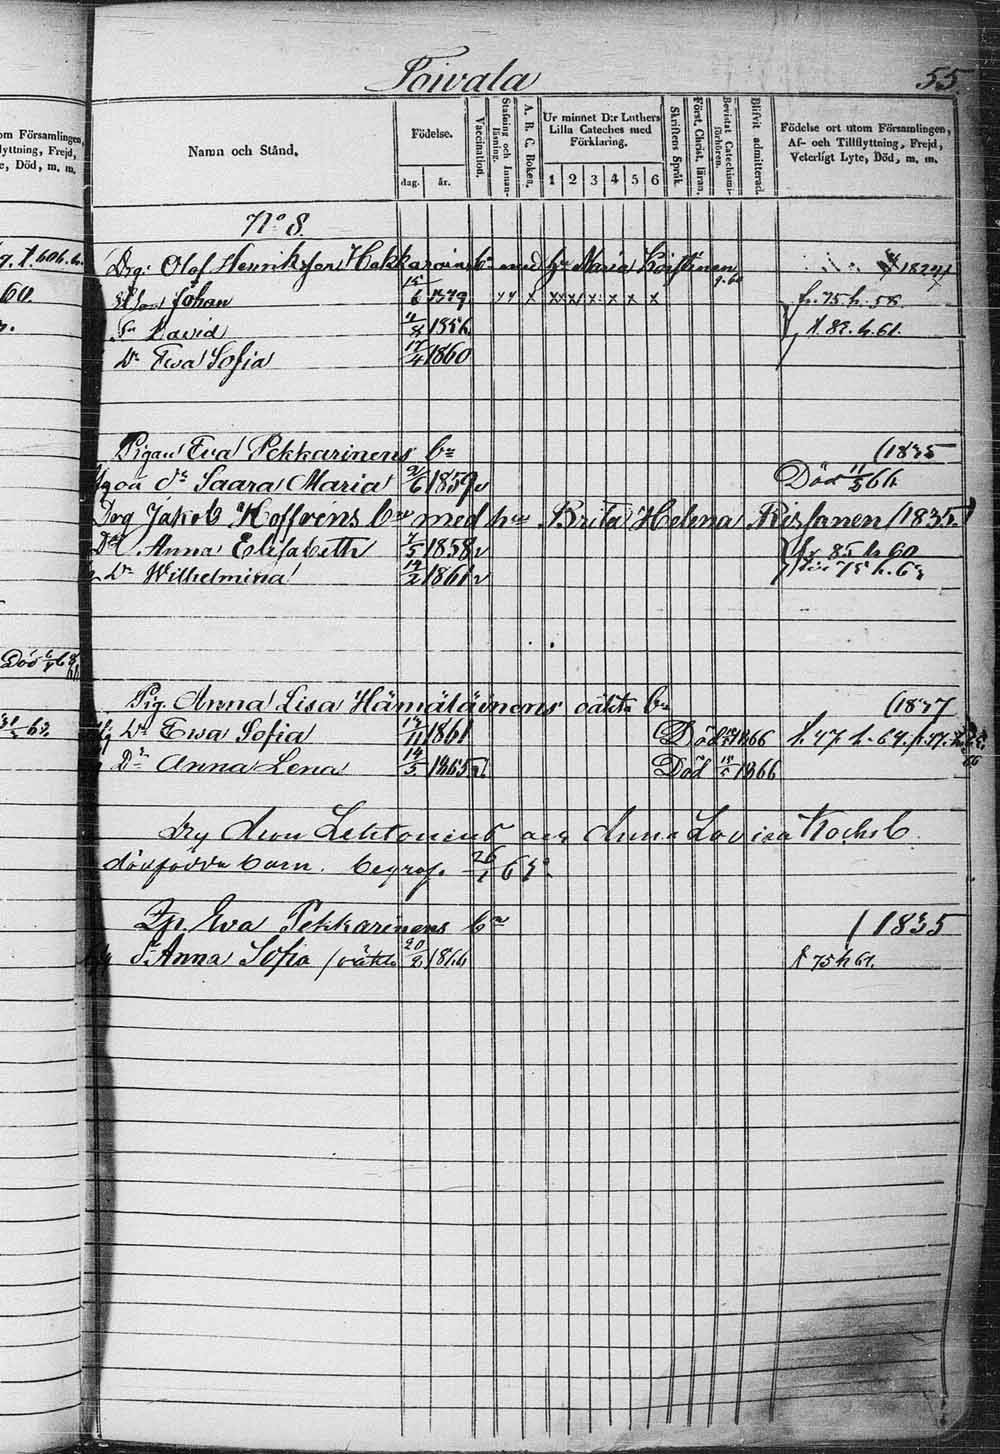 Toivala
55.
om Församlingen,
lyttning, Frejd,
e, Död, m. m.
Namn och Stånd.
Födelse.
dag.
år.
Vaccination.
Stafning och Innan-läsning.
A. B. C. Boken.
Ur minnet D:r Luthers
Lilla Cateches med
Förklaring.
1 2 3 4 5 6
Skriftens Språk.
Först. Christ. läran.
Bevistat Catechismi-förhören.
Blifvit admitterad.
Födelse ort utom Församlingen,
Af- och Tillflyttning, Frejd,
Veterligt Lyte, Död, m. m.
No 8.
Drg. Olof Henriksson Hakkarainens bn med hu Maria Koistinen
60.
Johan
fr. 75. h. 58
Sn David 1856
t. 82. h. 61.
Dr Ewa Sofia 17/4 1860
Pigan Eva Pekkarinens bn (1835
oä dr Saara Maria 2/6 1859 v Död 11/5 66
Drg Jakob Hoffrens bn med hu Brita Helena Rissanen (1835
Dr Anna Elisabeth 7/5 1858 v fr 85 h 60
Dr Wilhelmina 14/2 1861 v
Död
Pig. Anna Lisa Hämäläinens oäkta bn (1837
63.
Dr Ewa Sofia 13/11 1861 Död 1866 t. 47. h. 64.
Dr Anna Lena 14/5 1865 Död 15/5 1866
Drg Aron Lehtonens och Anna Lovisa Kochs b.
dödfödda barn. begrof. 26/1 65.
Qp. Eva Pekkarinens bn (1835
Dr Anna Sofia (oäkta 20/2 1866 t 75 h 67.